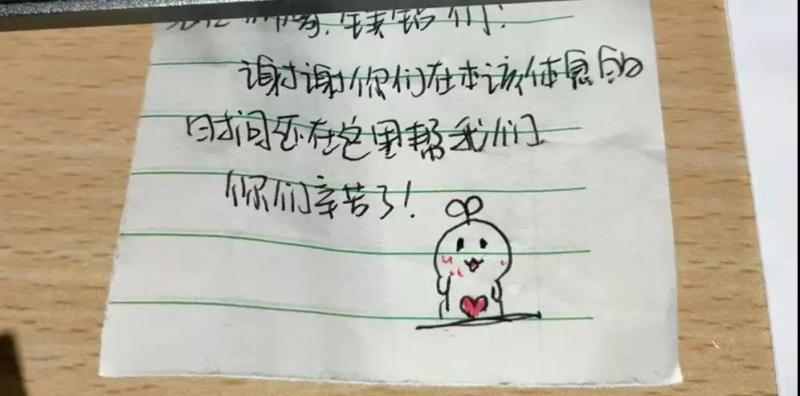 们:
谢谢你们在本该休息的
时间还在这里帮我们
你们辛苦了!